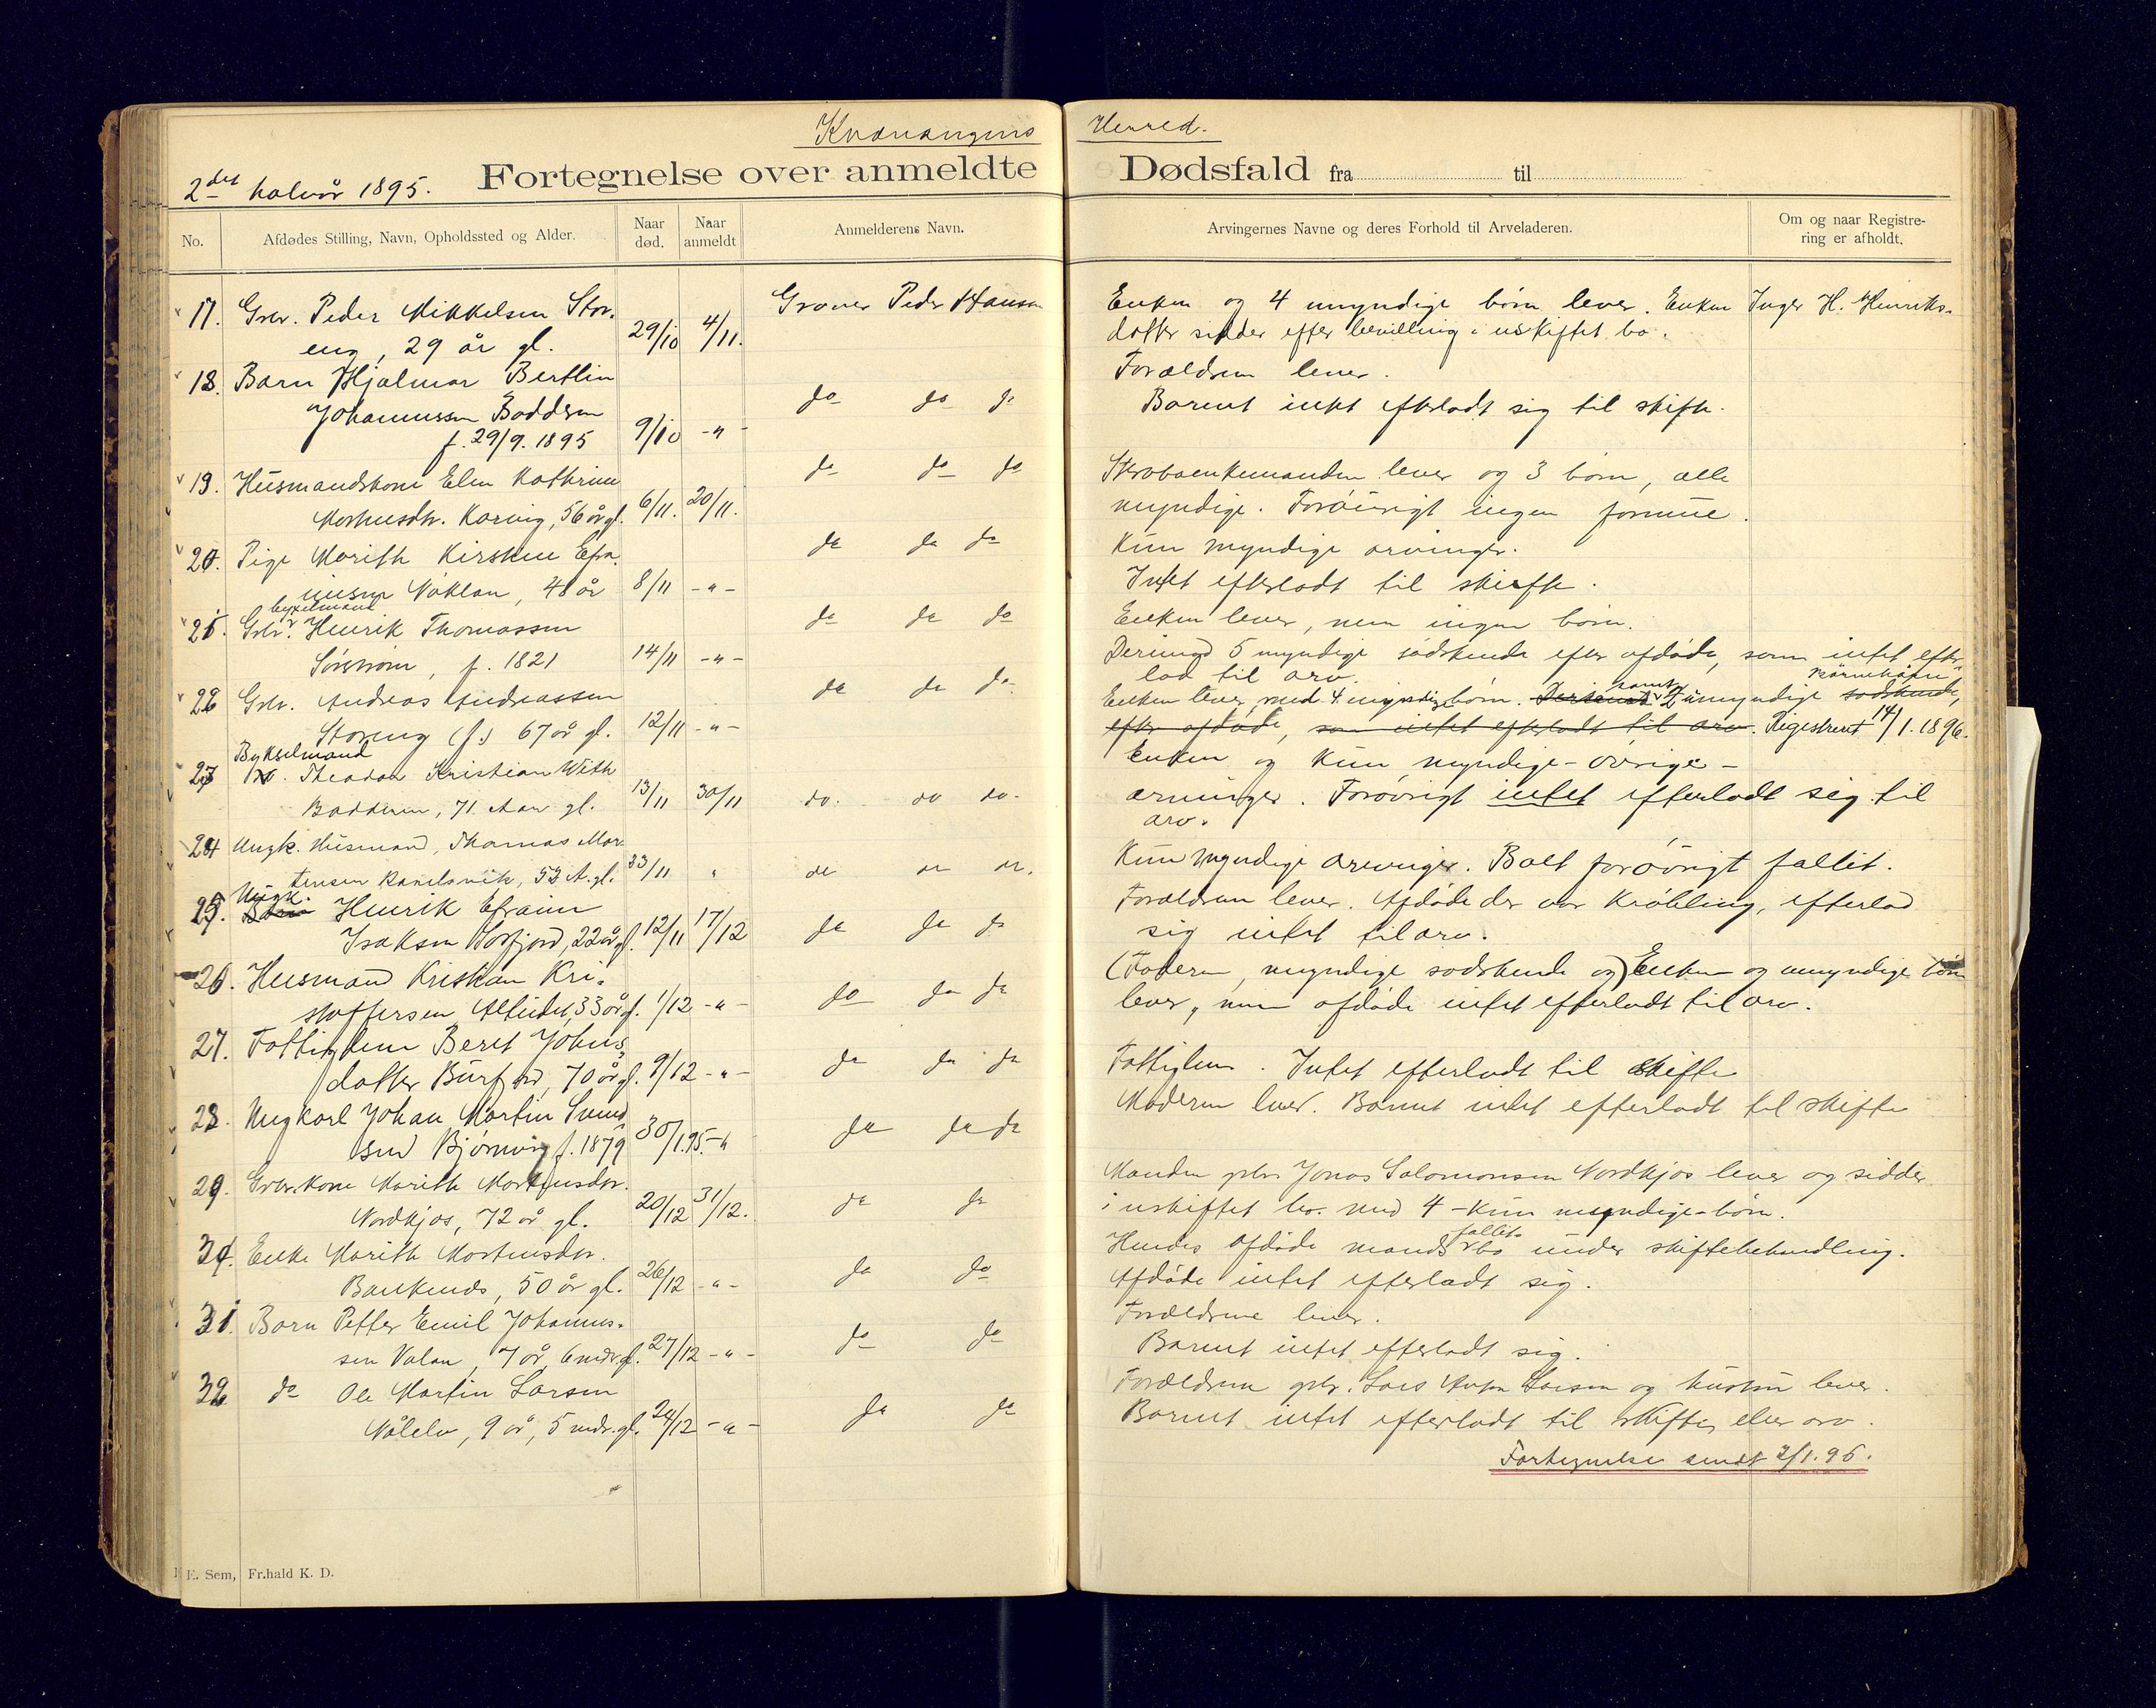 Kvænangens Herred.
2det halvår 1895. Fortegnelse over anmeldte Dødsfald fra til
No. Afdødes Stilling, Navn, Opholdssted og Alder. Naar død. Naar anmeldt Anmelderens Navn. Arvingernes Navne og deres Forhold til Arveladeren. Om og naar Registrering er afholdt.
17. Gbr. Peder Mikkelsen Stor- Graver Peder Hansen Enken og 4 umyndige børn lever. Enken Inger H. Henriks-
eng, 29 år gl. 29/10 4/11. datter sidder efter bevilling i uskiftet bo.
18. Barn Hjalmar Bertlin Forældrene lever.
Johannessen Badderen do do do Barnet intet efterladt sig til skifte.
f. 29/9. 1895 9/10 -"-
19. Husmandskone Elen Kathrine do do do enkemanden lever og 3 børn, alle
Mortensdtr. Karvig, 56 år gl. 6/11. 20/11. myndige. Forøvrigt ingen formue.
20. Pige Marith Kirstine Efra- do do do Kun myndige arvinger.
imsen Nøklan, 48 år 8/11 -"- Intet efterladt til skifte.
byxelmand
21. Gbr. Henrik Thomassen do do do Enken lever, men ingen børn.
Sørstrøm, f. 1821 14/11 -"- Derimod 5 myndige sødskende efter afdøde, som intet efter-
lod til arv.
22 Gbr. Andreas Andreassen do do do Enken lever med 4 myndige børn. Derimod samt 2 umyndige sødskende, børnebørn
Storeng (f.) 67 år gl. 12/11 -"- efter afdøde, som intet efterladt til arv. Registreret 14/1. 1896.
Bykselmand
23 Theodor Kristian With Enken og kun myndige - øvrige -
Badderen, 71 Aar gl. 13/11 30/11 do. do do. arvinger. Forøvrigt intet efterladt sig til
arv.
24 Ungk. Husmand, Thomas Mor- Kun myndige arvinger. Boet forøvrigt fallit.
tensen, 53 A. gl. 23/11 " do do do.
Ungk.
25. Barn Henrik Efraim Forældrene lever. Afdøde der var krøbling, efterlod
Isaksen Sørfjord, 22 år gl. 12/11 17/12 do do do sig intet til arv.
26. Husmand Kristian Kri- (Faderen, myndige sødskende og) Enken og umyndige børn
stoffersen Alteidet, 33 år gl. 1/12 -"- do do do lever, men afdøde intet efterladt til arv.
27. Fattiglem Beret Johns- Fattiglem. Intet efterladt til skifte
datter Burfjord, 70 år gl. 9/12 -"- do do do
28. Ungkarl Johan Martin Svend- Moderen lever. Barnet intet efterladt til skifte
sen Bjørnvig f. 1879 30/1.95. -" do do do
29. Gbr.kone Marith Mortensdtr. Manden gbr. Jonas Salomonsen Nordkjos lever og sidder
Nordkjos, 72 år gl. 20/12 31/12. do do i uskiftet bo med 4 - kun myndige - børn.
30. Enke Marith Mortensdtr. Hendes afdøde mands fallit bo under skiftebehandling.
Bankenæs, 50 år gl. 26/12 -"- do do Afdøde intet efterladt sig.
31. Barn Petter Emil Johannes- Forældrene lever.
sen Valan, 7 år, 6 mdr. gl. 27/12 -"- do do Barnet intet efterladt sig.
32 do Ole Martin Larsen Forældrene gbr. Lars Larsen og hustru lever.
Nålelv, 9 år, 5 mdr. gl. 24/12 -"- do do Barnet intet efterladt til skifte eller arv.
Fortegnelse sendt 2/1.96.
E. Sem, Fr.hald K. D.